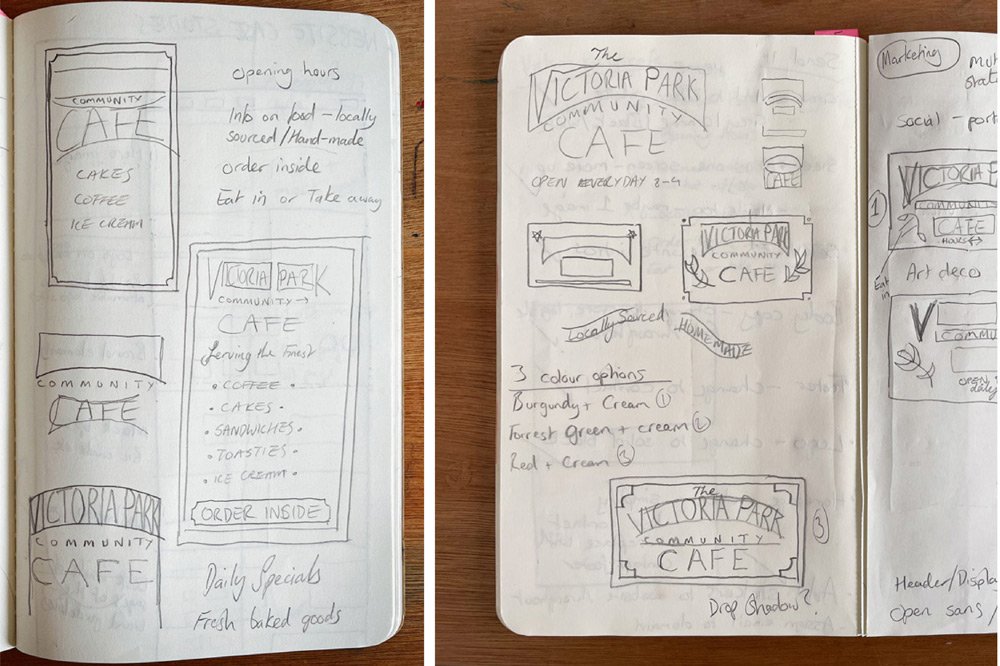 COMMUNITY
CAFE
CAKES
COFFEE
ICE CREAM
opening hours
Info on food - locally
sourced/Hand-made
order inside
Eat in or Take away
VICTORIA PARK
COMMUNITY →
CAFE
Serving the Forest
• COFFEE •
• CAKES •
• SANDWICHES •
• TOASTIES •
• ICE CREAM •
ORDER INSIDE
COMMUNITY
CAFE
VICTORIA PARK
COMMUNITY
CAFE
Daily Specials
Fresh baked goods
The
VICTORIA PARK
COMMUNITY
CAFE
OPEN EVERYDAY 8-4
CAFE
VICTORIA PARK
COMMUNITY
CAFE
Locally Sourced
HOMEMADE
3 colour options
Burgundy + Cream ①
Forrest Green + cream ②
Red + Cream ③
The
VICTORIA PARK
COMMUNITY
CAFE
③
Drop Shadow?
Marketing
social - port
①
VICTORIA PAR
COMMUNITY
CAFE
HOURS
Eat
in
Art deco
V
COMMU
OPEN
daily
Header/Displa
Open sans /